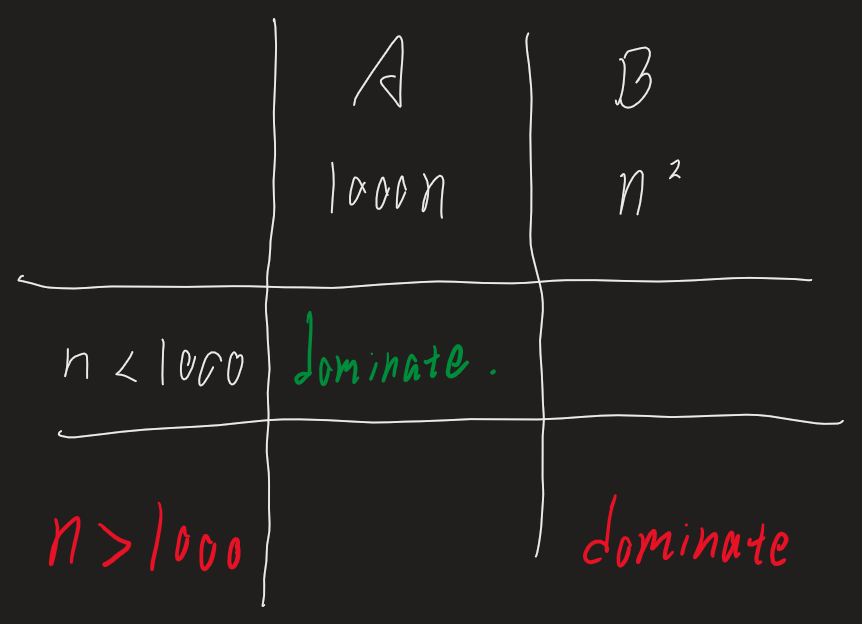 A B
1000n n²
n < 1000 dominate.
n > 1000 dominate